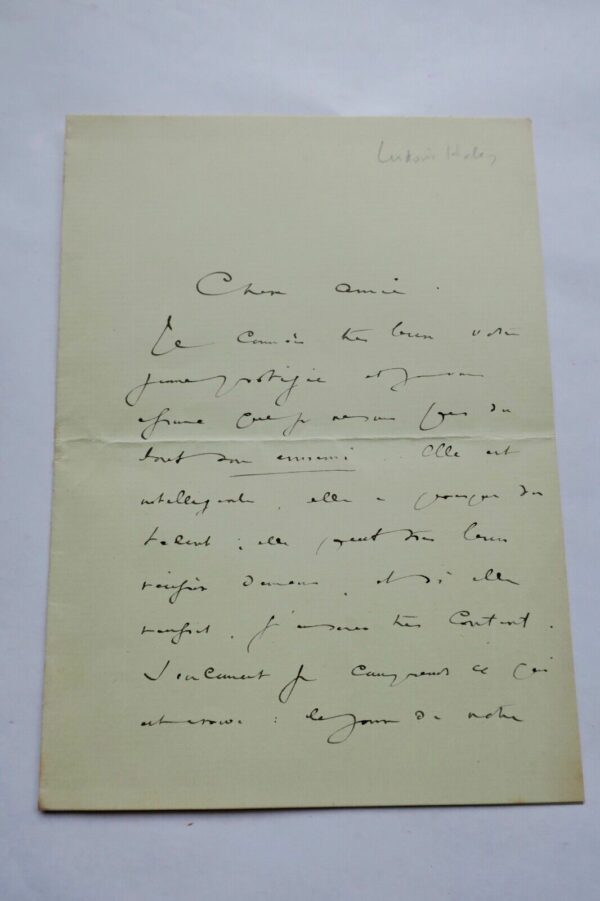 Chère amie.
Je connais très bien votre
jeune protégée et je vous
affirme que je ne suis pas du
tout son ennemi. Elle est
intelligente, elle a presque du
talent ; elle peut très bien
réussir demain, et si elle
réussit, j'en serai très content.
Seulement je comprends ce qui
est arrivé : le jour de notre